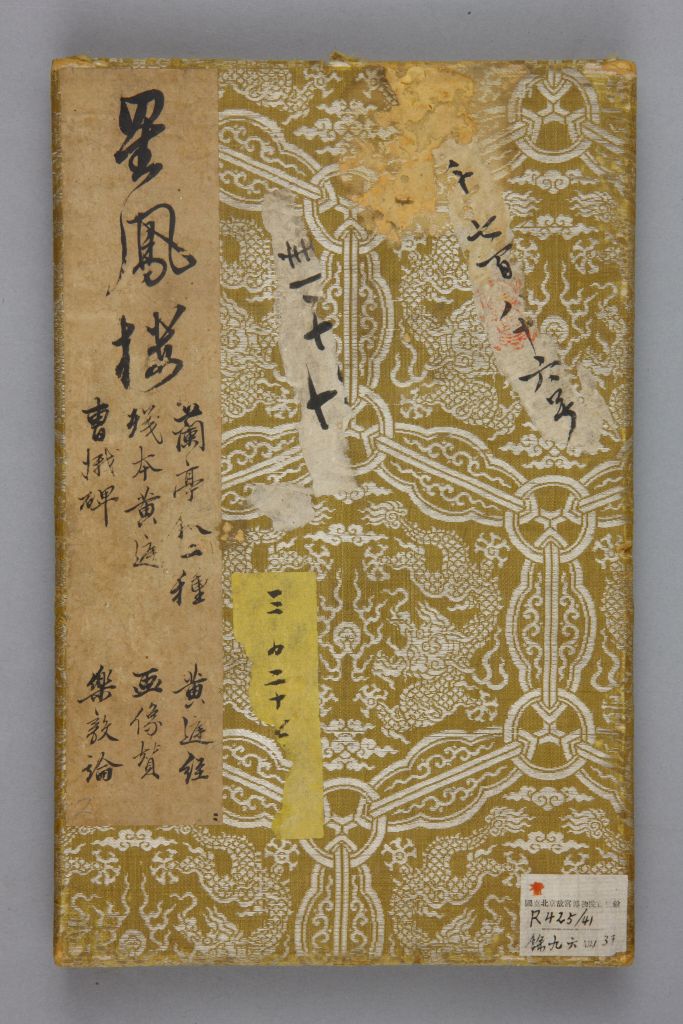 星鳳楼
蘭亭 二種
黄庭經
残本黄庭
画像贊
曹娥碑
樂毅論
千七百八十六号
一十七
三 力二十七
國立北京故宮博物院
R 425/41
餘九六 37